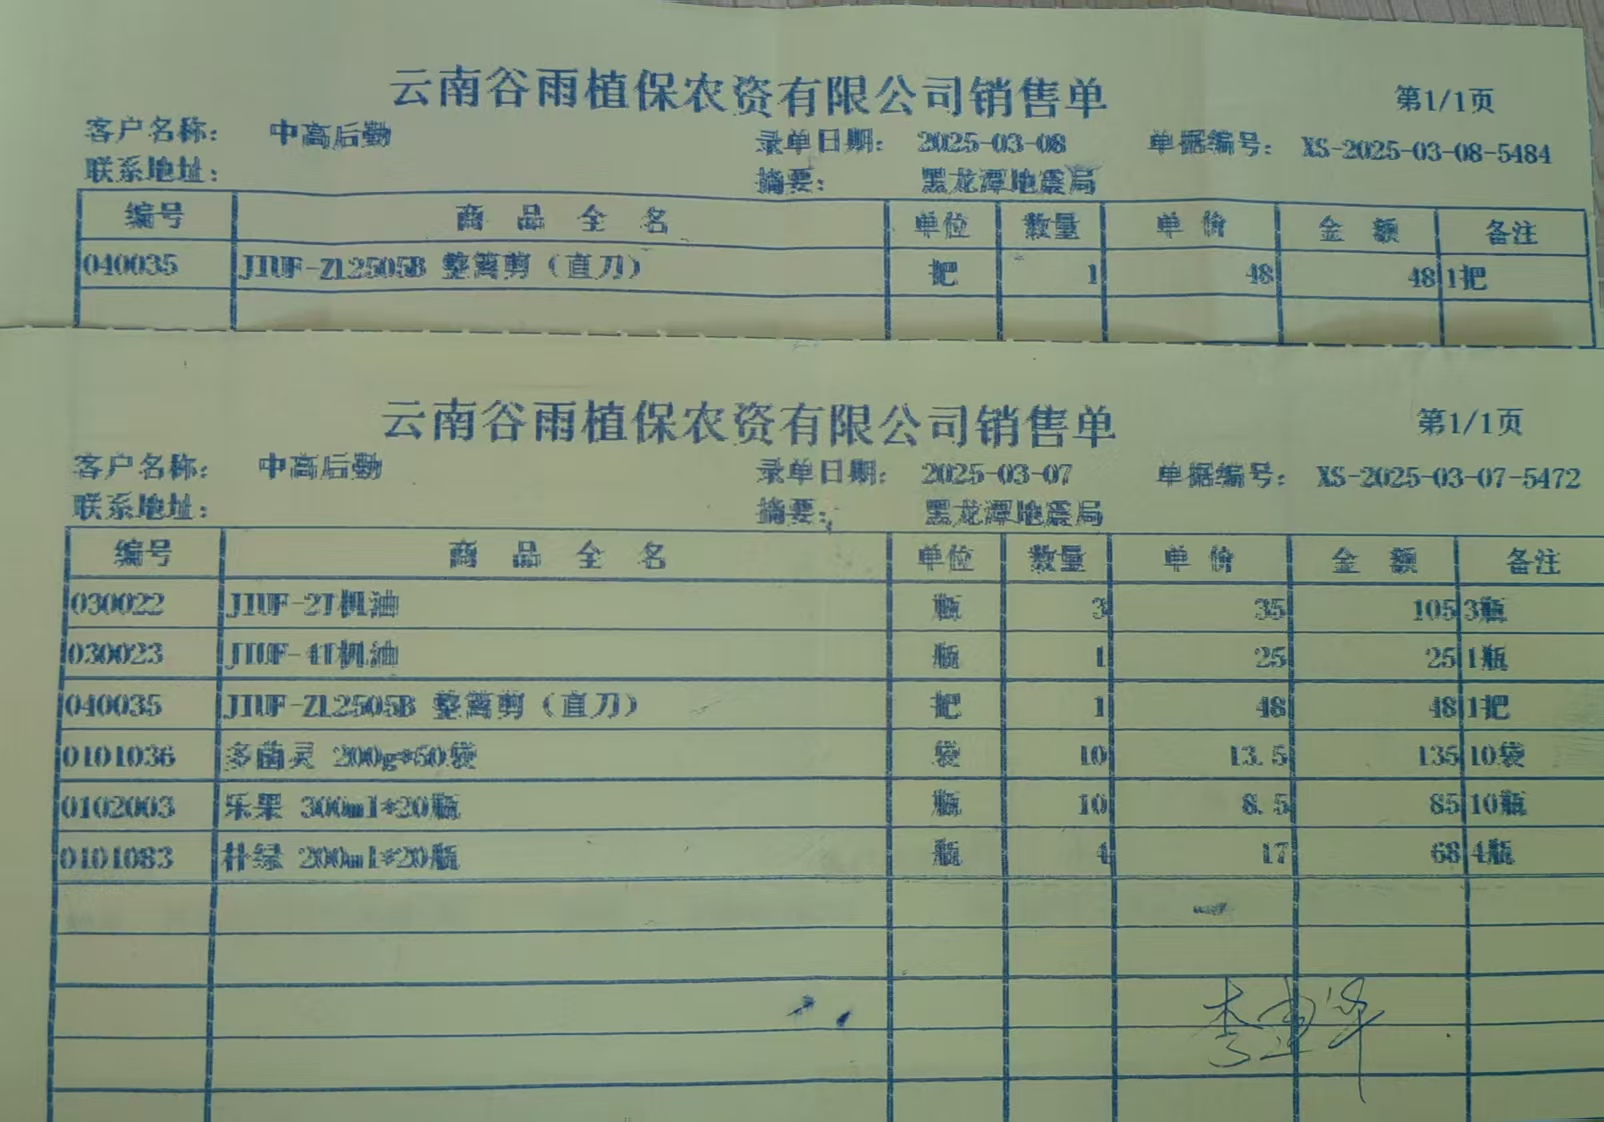 云南谷雨植保农资有限公司销售单 第1/1页
客户名称: 中高后勤 录单日期: 2025-03-08 单据编号: XS-2025-03-08-5484
联系地址: 摘要: 黑龙潭地震局
编号 商品全名 单位 数量 单价 金额 备注
040035 JIUF-ZL2505B 整篱剪（直刀） 把 1 48 48 1把
云南谷雨植保农资有限公司销售单 第1/1页
客户名称: 中高后勤 录单日期: 2025-03-07 单据编号: XS-2025-03-07-5472
联系地址: 摘要: 黑龙潭地震局
编号 商品全名 单位 数量 单价 金额 备注
030022 JIUF-2T机油 瓶 3 35 105 3瓶
030023 JIUF-4T机油 瓶 1 25 25 1瓶
040035 JIUF-ZL2505B 整篱剪（直刀） 把 1 48 48 1把
0101036 多菌灵 200g*50袋 袋 10 13.5 135 10袋
0102003 乐果 300ml*20瓶 瓶 10 8.5 85 10瓶
0101083 朴绿 200ml*20瓶 瓶 4 17 68 4瓶